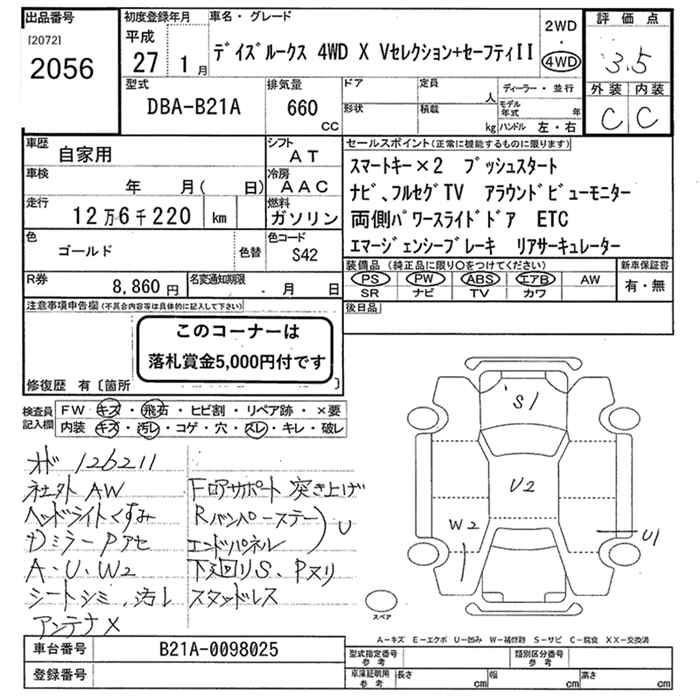 出品番号
[2072]
2056
初度登録年月
平成
27 1 月
車名・グレード
デイズルークス 4WD X Vセレクション+セーフティII
2WD
・
4WD
評価点
3.5
外装 内装
C C
型式
DBA-B21A
排気量
660
CC
ドア
形状
定員
人
積載
kg
ディーラー・並行
モデル年式 年
ハンドル 左・右
車歴
自家用
シフト
AT
車検
年 月( 日)
冷房
AAC
走行
12万6千220 km
燃料
ガソリン
色
ゴールド
色替
色コード
S42
R券
8,860円
名変通知期限
月 日
セールスポイント(正常に機能するものに限ります)
スマートキー×2 プッシュスタート
ナビ、フルセグTV アラウンドビューモニター
両側パワースライドドア ETC
エマージェンシーブレーキ リアサーキュレーター
装備品(純正品に限り○をつけてください)
PS PW ABS エアB AW
SR ナビ TV カワ
新車保証書
有・無
後日品
注意事項申告欄(不具合内容等は具体的に記入して下さい)
このコーナーは
落札賞金5,000円付です
修復歴 有〔箇所 〕
検査員
記入欄
FW キズ・飛石・ヒビ割・リペア跡・×要
内装 キズ・汚レ・コゲ・穴・スレ・キレ・破レ
126211
社外AW
ヘッドライトくすみ
Dミラー Pアセ
A・U・W2
シートシミ、汚レ
アンテナ×
Fロアサポート突き上げ
Rバンパーステー
エンドパネル
) U
下廻りS、Pヌリ
スタッドレス
S1
U2
W2
U1
スペア
A-キズ E-エクボ U-凹み W-補修跡 S-サビ C-腐食 XX-交換済
車台番号
B21A-0098025
登録番号
型式指定番号
参考
類別区分番号
参考
車庫証明用
参考
長さ cm
幅 cm
高さ cm